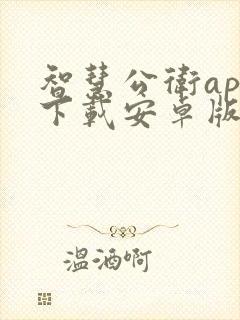 智慧公衛ap
下載安卓版
溫酒啊